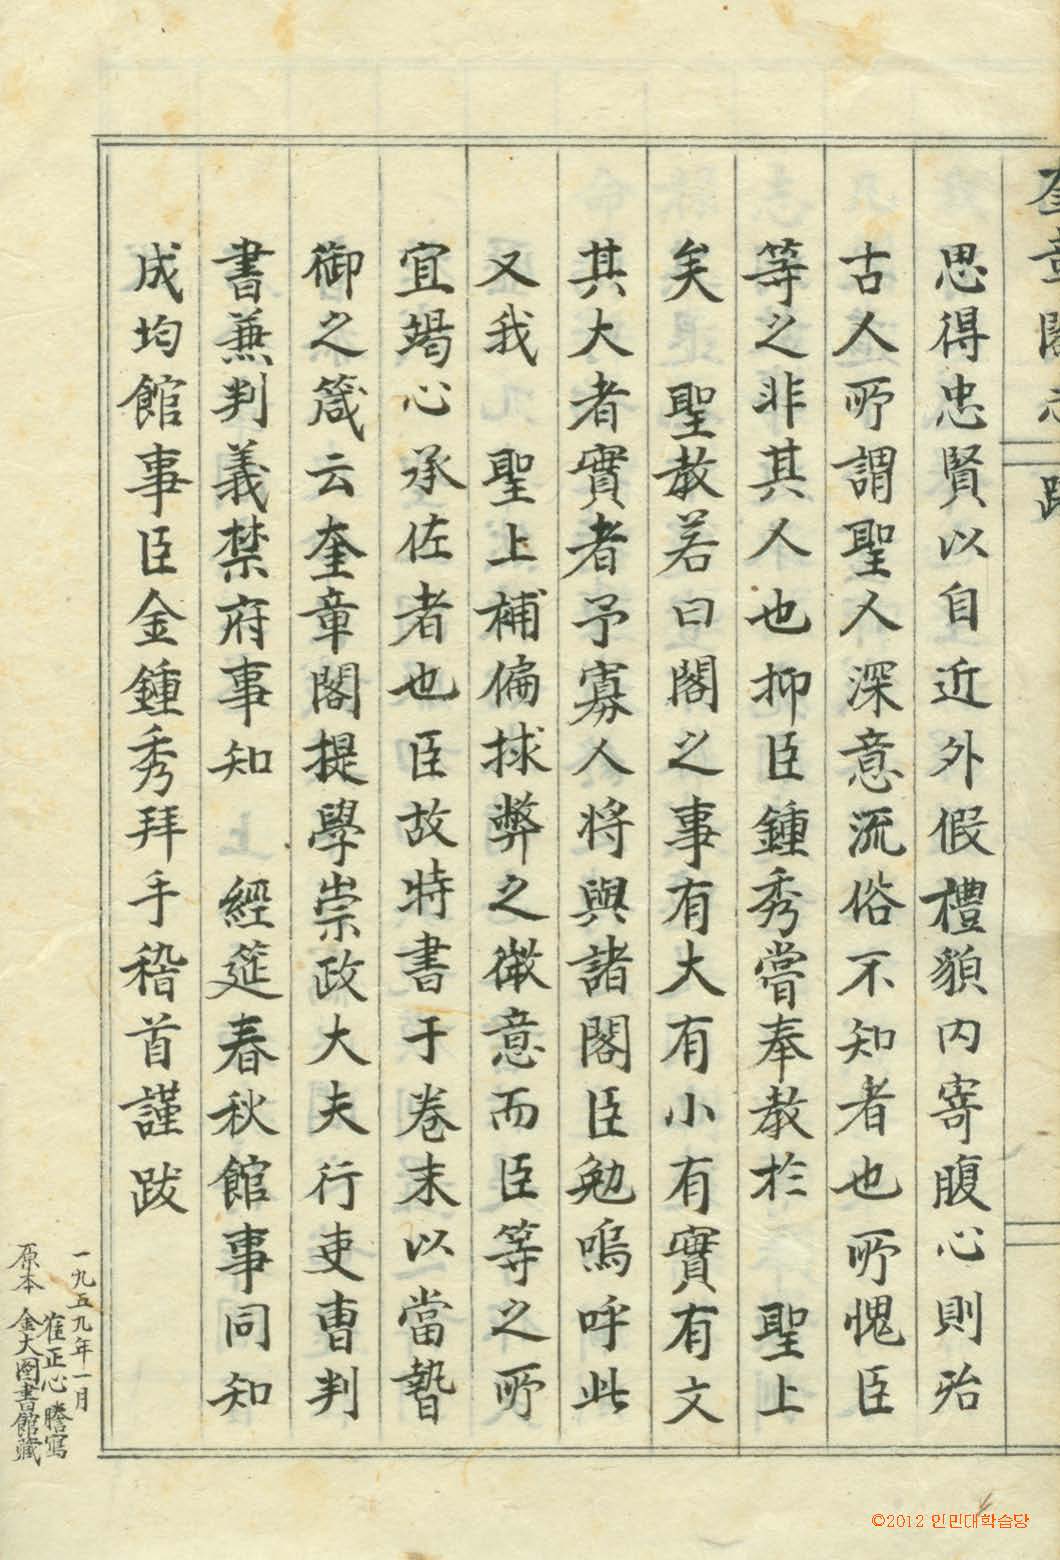 奎章閣志 跋
思得忠賢以自近外假禮貌內寄腹心則殆
古人所謂聖人深意流俗不知者也所愧臣
等之非其人也抑臣鍾秀嘗奉教於 聖上
矣 聖教若曰閣之事有大有小有實有文
其大者實者予寡人將與諸閣臣勉嗚呼此
又我 聖上補偏捄弊之微意而臣等之所
宜竭心承佐者也臣故特書于卷末以當暬
御之箴云奎章閣提學崇政大夫行吏曹判
書兼判義禁府事知 經筵春秋館事同知
成均館事臣金鍾秀拜手稽首謹跋
一九五九年一月
崔正心謄寫
原本 金大图書館藏
©2012 인민대학습당